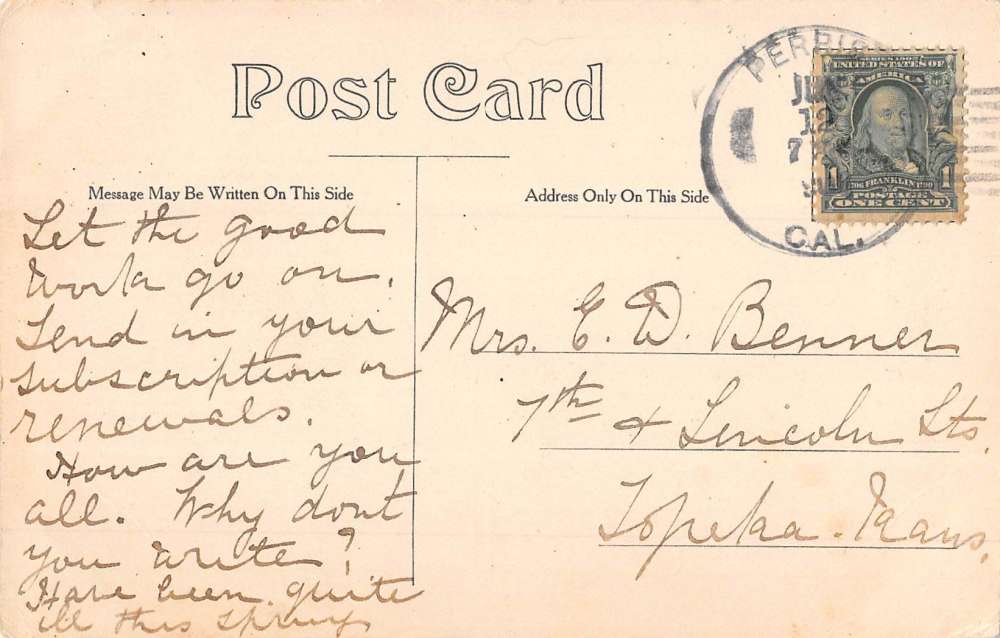 Post Card
Message May Be Written On This Side
Address Only On This Side
Let the good
work go on.
Send in your
subscription or
renewals.
How are you
all. Why dont
you write?
Have been quite
ill this spring
Mrs. E. D. Benner
7th & Lincoln Sts.
Topeka. Kans.
PERRIS
12
7
CAL.
SERIES 1902
UNITED STATES OF
AMERICA
1 FRANKLIN 1
POSTAGE
ONE CENT